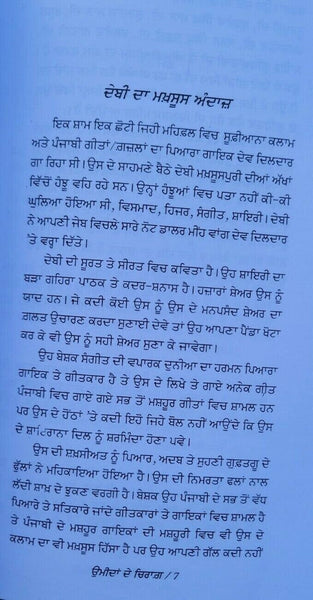 ਦੇਬੀ ਦਾ ਮਖ਼ਸੂਸ ਅੰਦਾਜ਼
ਇਕ ਸ਼ਾਮ ਇਕ ਛੋਟੀ ਜਿਹੀ ਮਹਿਫ਼ਲ ਵਿਚ ਸੂਫ਼ੀਆਨਾ ਕਲਾਮ
ਅਤੇ ਪੰਜਾਬੀ ਗੀਤਾਂ/ਗ਼ਜ਼ਲਾਂ ਦਾ ਪਿਆਰਾ ਗਾਇਕ ਦੇਵ ਦਿਲਦਾਰ
ਗਾ ਰਿਹਾ ਸੀ। ਉਸ ਦੇ ਸਾਹਮਣੇ ਬੈਠੇ ਦੇਬੀ ਮਖ਼ਸੂਸਪੁਰੀ ਦੀਆਂ ਅੱਖਾਂ
ਵਿੱਚੋਂ ਹੰਝੂ ਵਹਿ ਰਹੇ ਸਨ। ਉਨ੍ਹਾਂ ਹੰਝੂਆਂ ਵਿਚ ਪਤਾ ਨਹੀਂ ਕੀ-ਕੀ
ਘੁਲਿਆ ਹੋਇਆ ਸੀ, ਵਿਸਮਾਦ, ਹਿਜਰ, ਸੰਗੀਤ, ਸ਼ਾਇਰੀ। ਦੇਬੀ
ਨੇ ਆਪਣੀ ਜੇਬ ਵਿਚਲੇ ਸਾਰੇ ਨੋਟ ਡਾਲਰ ਮੀਂਹ ਵਾਂਗ ਦੇਵ ਦਿਲਦਾਰ
'ਤੇ ਵਰ੍ਹਾ ਦਿੱਤੇ।
ਦੇਬੀ ਦੀ ਸੂਰਤ ਤੇ ਸੀਰਤ ਵਿਚ ਕਵਿਤਾ ਹੈ। ਉਹ ਸ਼ਾਇਰੀ ਦਾ
ਬੜਾ ਗਹਿਰਾ ਪਾਠਕ ਤੇ ਕਦਰ-ਸ਼ਨਾਸ ਹੈ। ਹਜ਼ਾਰਾਂ ਸ਼ੇਅਰ ਉਸ ਨੂੰ
ਯਾਦ ਹਨ। ਜੇ ਕਦੀ ਕੋਈ ਉਸ ਨੂੰ ਉਸ ਦੇ ਮਨਪਸੰਦ ਸ਼ੇਅਰ ਦਾ
ਗ਼ਲਤ ਉਚਾਰਣ ਕਰਦਾ ਸੁਣਾਈ ਦੇਵੇ ਤਾਂ ਉਹ ਆਪਣਾ ਪੈਂਡਾ ਖੋਟਾ
ਕਰ ਕੇ ਵੀ ਉਸ ਨੂੰ ਸਹੀ ਸ਼ੇਅਰ ਸੁਣਾ ਕੇ ਜਾਵੇਗਾ।
ਉਹ ਬੇਸ਼ਕ ਸੰਗੀਤ ਦੀ ਵਪਾਰਕ ਦੁਨੀਆ ਦਾ ਹਰਮਨ ਪਿਆਰਾ
ਗਾਇਕ ਤੇ ਗੀਤਕਾਰ ਹੈ ਤੇ ਉਸ ਦੇ ਲਿਖੇ ਤੇ ਗਾਏ ਅਨੇਕ ਗੀਤ
ਪੰਜਾਬੀ ਵਿਚ ਗਾਏ ਗਏ ਸਭ ਤੋਂ ਮਸ਼ਹੂਰ ਗੀਤਾਂ ਵਿਚ ਸ਼ਾਮਲ ਹਨ
ਪਰ ਉਸ ਦੇ ਹੋਂਠਾਂ 'ਤੇ ਕਦੀ ਇਹੋ ਜਿਹੇ ਬੋਲ ਨਹੀਂ ਆਉਂਦੇ ਕਿ ਉਸ
ਦੇ ਸ਼ਾਇਰਾਨਾ ਦਿਲ ਨੂੰ ਸ਼ਰਮਿੰਦਾ ਹੋਣਾ ਪਵੇ।
ਉਸ ਦੀ ਸ਼ਖ਼ਸੀਅਤ ਨੂੰ ਪਿਆਰ, ਅਦਬ ਤੇ ਸੁਹਣੀ ਗੁਫ਼ਤਗੂ ਦੇ
ਫੁੱਲਾਂ ਨੇ ਮਹਿਕਾਇਆ ਹੋਇਆ ਹੈ। ਉਸ ਦੀ ਨਿਮਰਤਾ ਫਲਾਂ ਨਾਲ
ਲੱਦੀ ਸ਼ਾਖ਼ ਦੇ ਝੁਕਣ ਵਰਗੀ ਹੈ। ਬੇਸ਼ਕ ਉਹ ਪੰਜਾਬੀ ਦੇ ਸਭ ਤੋਂ ਵੱਧ
ਪਿਆਰੇ ਤੇ ਸਤਿਕਾਰੇ ਜਾਂਦੇ ਗੀਤਕਾਰਾਂ ਤੇ ਗਾਇਕਾਂ ਵਿਚ ਸ਼ਾਮਿਲ ਹੈ
ਤੇ ਪੰਜਾਬੀ ਦੇ ਮਸ਼ਹੂਰ ਗਾਇਕਾਂ ਦੀ ਮਸ਼ਹੂਰੀ ਵਿਚ ਵੀ ਉਸ ਦੇ
ਕਲਾਮ ਦਾ ਵੀ ਮਖ਼ਸੂਸ ਹਿੱਸਾ ਹੈ ਪਰ ਉਹ ਆਪਣੀ ਗੱਲ ਕਦੀ ਨਹੀਂ
ਉਮੀਦਾਂ ਦੇ ਚਿਰਾਗ਼/7